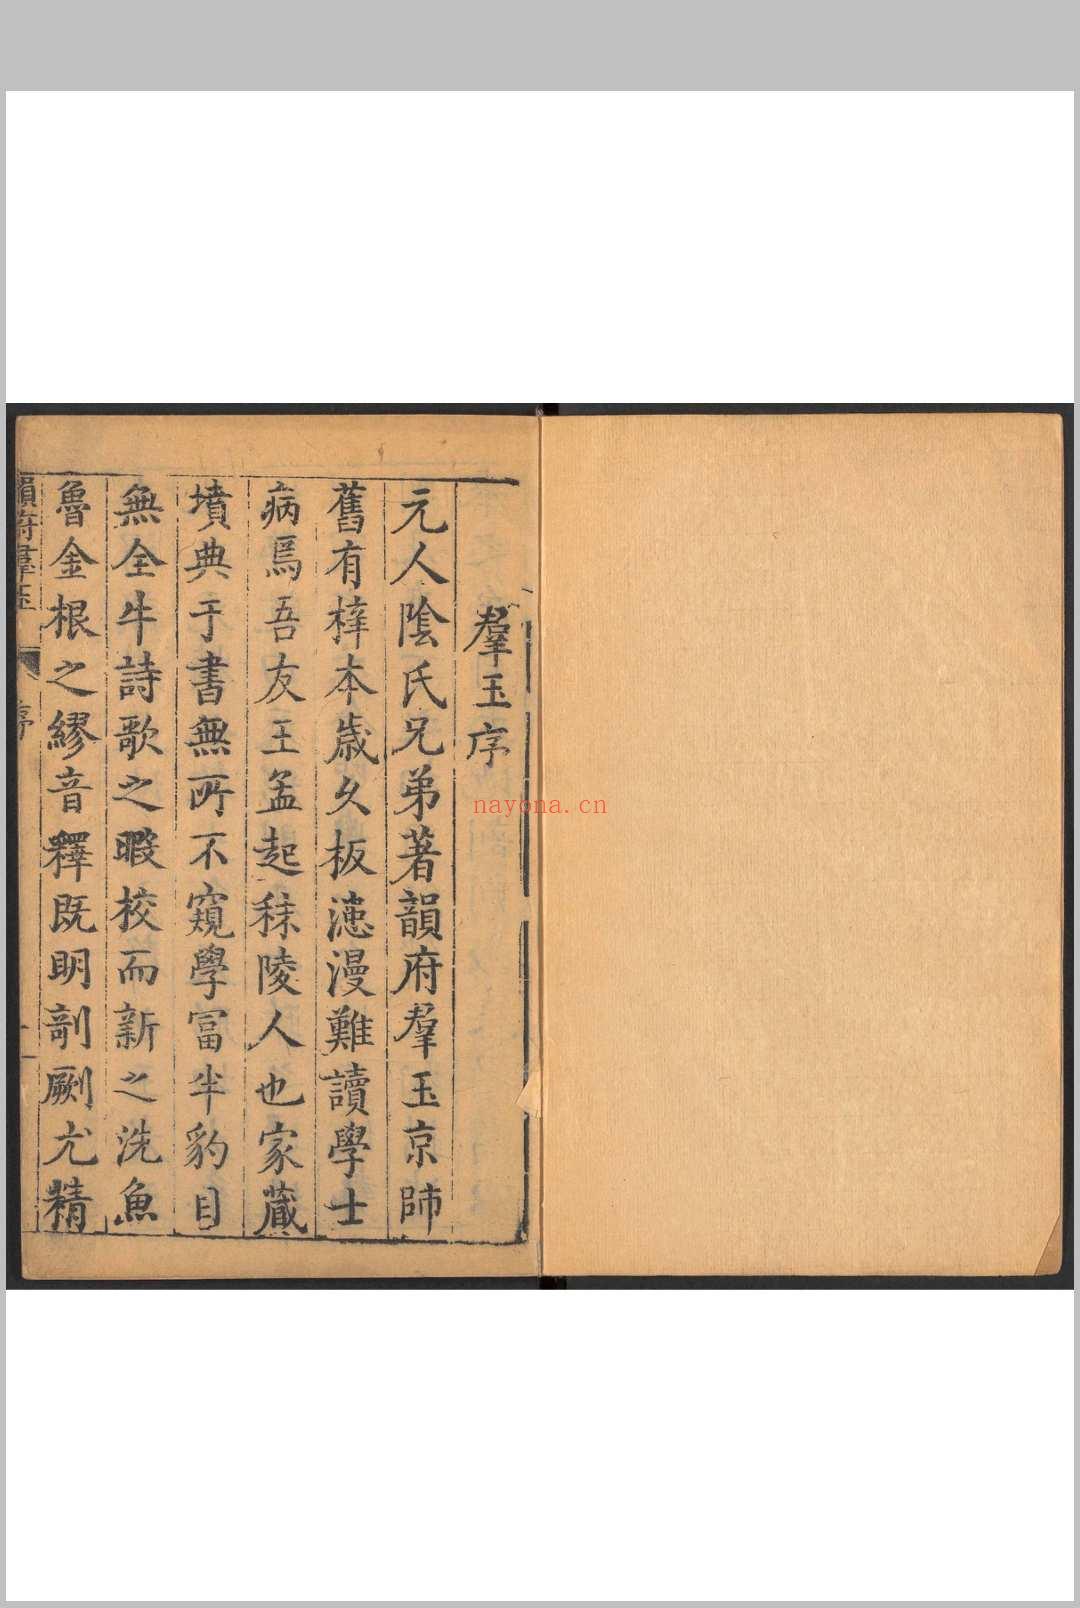 羣玉序
元人陰氏兄弟著韻府羣玉京師
舊有梓本歳久板漶漫難讀學士
病焉吾友王孟起秣陵人也家蔵
墳典于書無所不窺學冨半豹目
無全牛詩歌之暇校而新之洗魚
魯金根之繆音釋既明剞劂尤精
韻府羣玉 序 一
nayona.cn